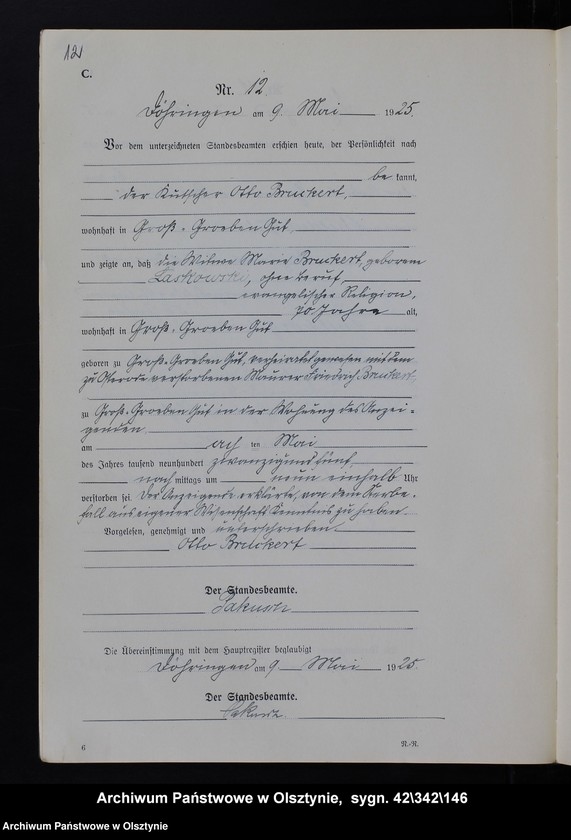 12
C.
Nr. 12.
Döhringen am 9. Mai 1925.
Vor dem unterzeichneten Standesbeamten erschien heute, der Persönlichkeit nach
bekannt,
der Kutscher Otto Bruckert,
wohnhaft in Groß-Groeben Gut,
und zeigte an, daß die Witwe Marie Bruckert, geborene
Laskowski, ohne Beruf,
evangelischer Religion,
70 Jahre alt,
wohnhaft in Groß-Groeben Gut
geboren zu Groß-Groeben Gut, verheiratet gewesen mit dem
zu Osterode verstorbenen Maurer Friedrich Bruckert,
zu Groß-Groeben Gut in der Wohnung des Anzei-
genden
am ach ten Mai
des Jahres tausend neunhundert zwanzigundfünf
nachmittags um neun einhalb Uhr
verstorben sei. Der Anzeigende erklärte, von dem Sterbe-
fall aus eigener Wissenschaft Kenntnis zu haben.
Vorgelesen, genehmigt und unterschrieben.
Otto Bruckert
Der Standesbeamte.
Die Übereinstimmung mit dem Hauptregister beglaubigt
Döhringen am 9 Mai 1925.
Der Standesbeamte.
6
N.-R.
Archiwum Państwowe w Olsztynie, sygn. 42\342\146
Archiwum Państwowe w Olsztynie